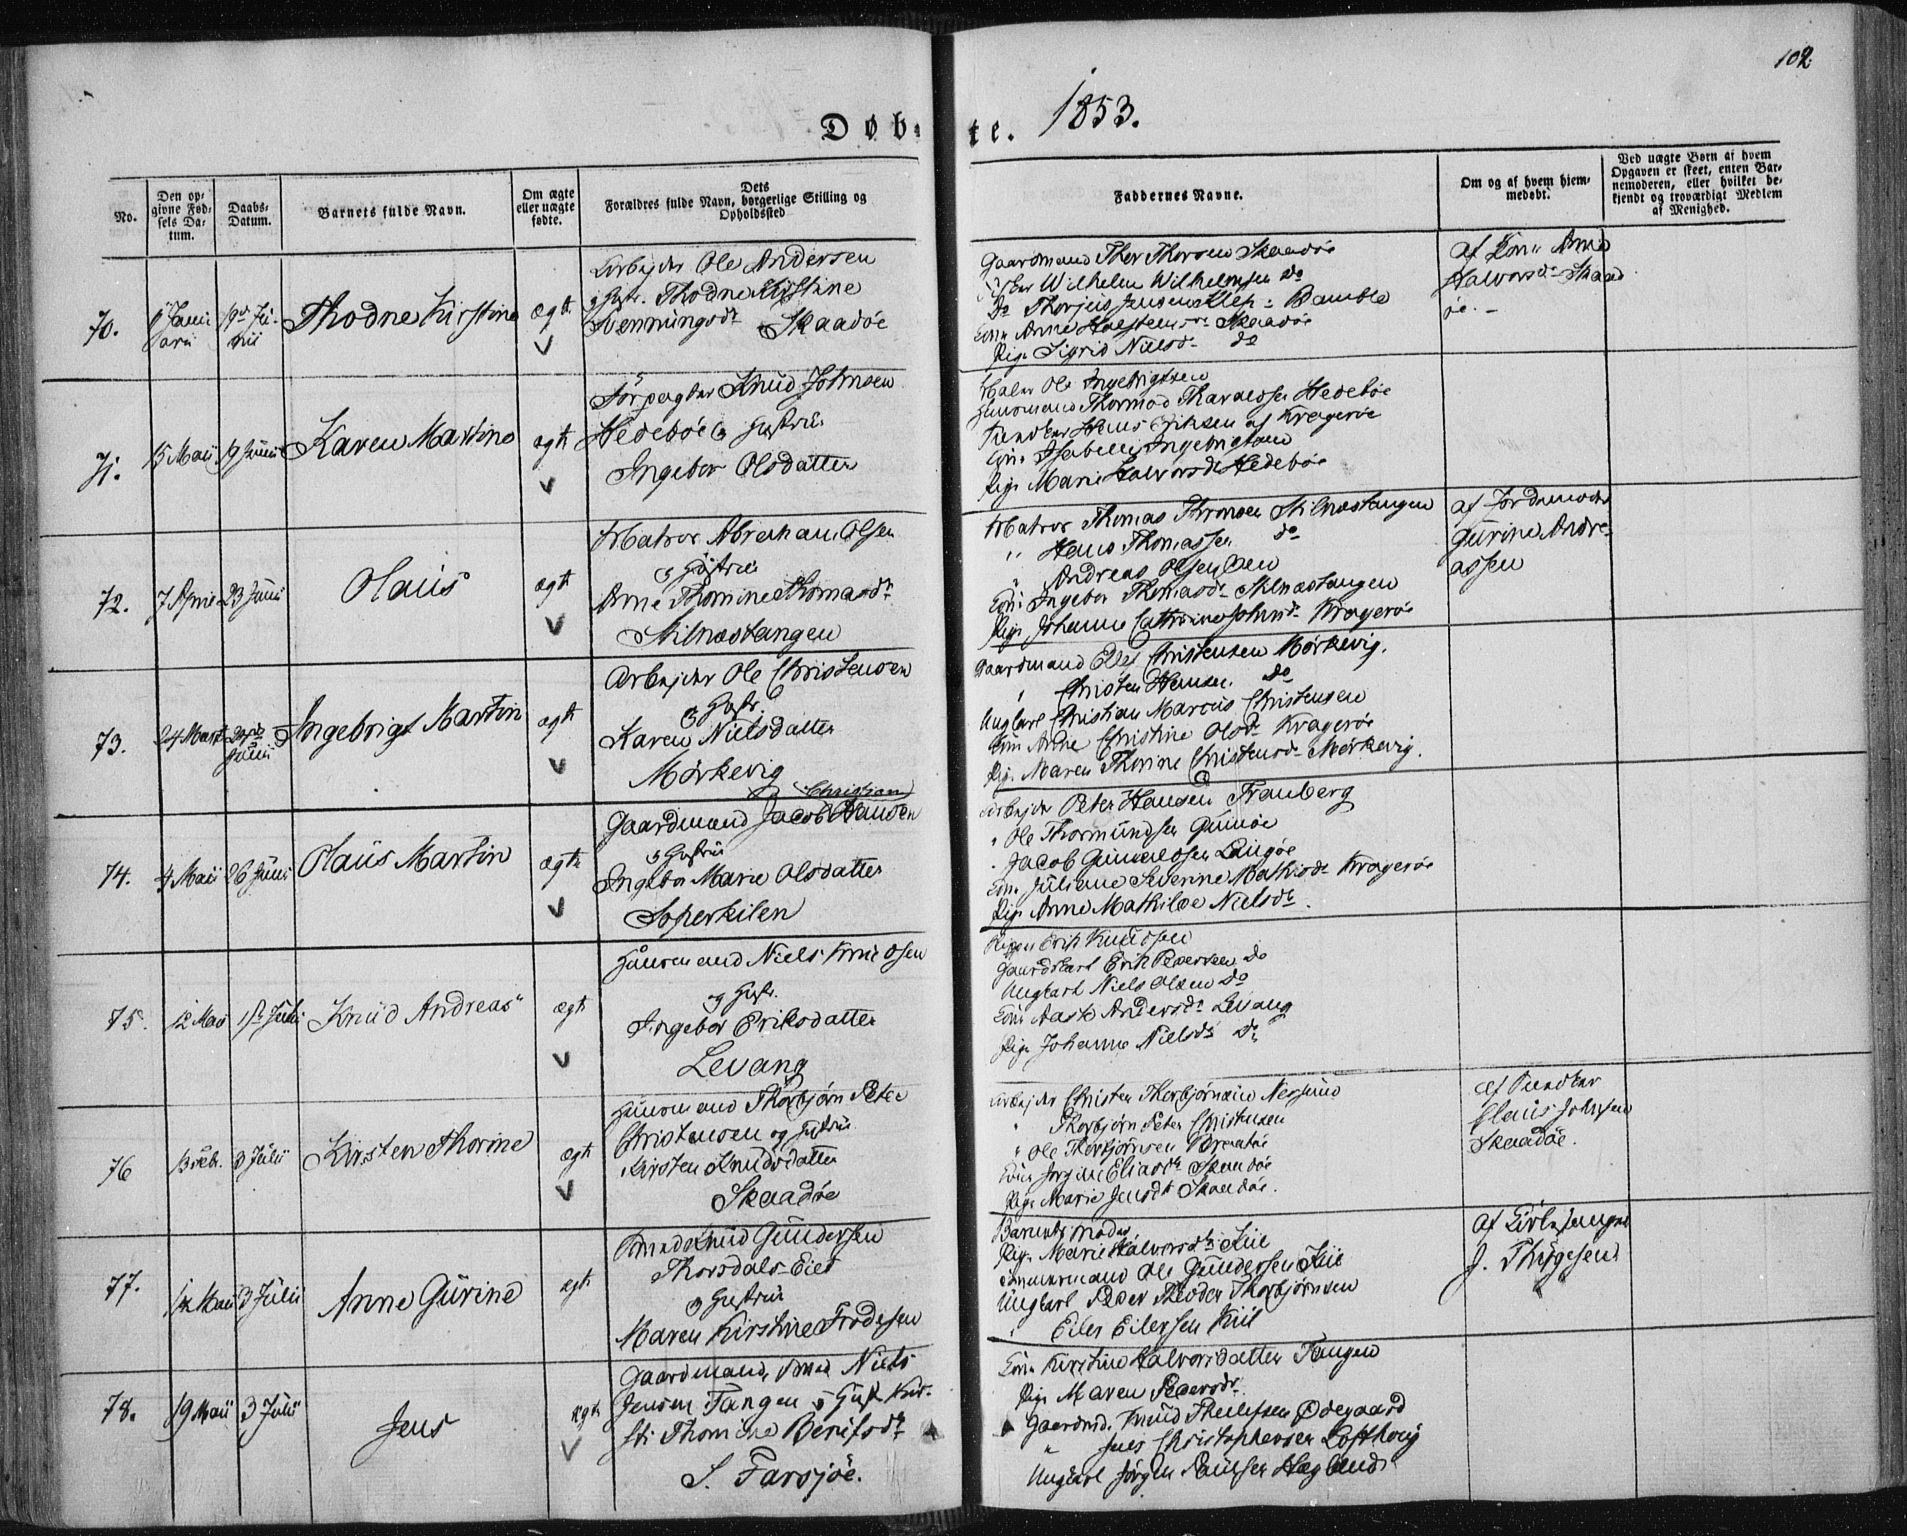 102
1853.
Døb-
te.
No.
Den op-
givne Fød-
sels Da-
tum.
Daabs-
Datum.
Barnets fulde Navn.
Om ægte
eller uægte
fødte.
Dets
Forældres fulde Navn, borgerlige Stilling og
Opholdssted
Faddernes Navne.
Om og af hvem hjem-
medøbt.
Ved uægte Børn af hvem
Opgaven er skeet, enten Bar-
nemoderen, eller hvilket be-
kjendt og troværdigt Medlem
af Menighed.
70.
Thodne Kirstine
ægte
Arbejder Ole Andersen
Thodne Kirstine
Svenningsdr Skaadøe
Gaardmand Thor Thorsen Skaadøe
Fisker Wilhelm Wilhelmsen Do
Do Thorjus Jensen Klep - Bamble
Kone Anne Holstensdr Skaadøe
Pige Sigrid Nielsdr do
af Kone Anne
Halvorsdr Skaad
øe. -
71.
15 Maii
19 Junii
Karen Martine
ægte
Forpagter Knud Johnsen
Hedebøe & Hustrue
Ingebor Olsdatter
Maler Ole Ingebrigtsen
Huusmand Thormod Hedebøe
af Kragerøe
Kone Isabelle
Pige Marie Halvorsdr Hedebøe
72.
7 April
23 Junii
Olaus
ægte
Matros Abraham Olsen
og Hustrue
Anne Thomine Thomasdr
Stilnæstangen
Matros Thomas Thomsen Stilnæstangen
" Hans Thomassen do
" Andreas Olsen
Kone Ingebor Thomasdr Stilnæstangen
Pige Johanne Cathrine Johnsdr Kragerøe
af Jordemoder
Gurine Andre-
assen
73.
24 Marts
Junii
Ingebrigt Martin
ægte
Arbejder Ole Christensen
og Hustr.
Karen Nielsdatter
Mørkevig
Gaardmand Christensen Mørkevig.
" Christen Hansen Do
Ungkarl Christian Marcus Christensen
Kone Anne Christine Olsdr Kragerøe
Pige Maren Thorine Christensdr Mørkevig.
74.
4 Maii
26 Junii
Olaus Martin
ægte
Christian
Gaardmand Jacob Hansen
og Hustrue
Ingebor Marie Olsdatter
Soperkilen
Arbejder Peter Hansen Franberg
" Ole Thormundsen Gumøe
" Jacob Gunnersen Langøe
Kone Juliane Severine Mathisdr Kragerøe
Pige Anne Mathilde Nielsdr.
75.
12 Maii
1ste Julii
Knud Andreas
ægte
Huusmand Niels Knudsen
og Hustr.
Ingebor Eriksdatter
Levang
Erik Knudsen
Gaardkarl Erik Pedersen Do
Ungkarl Niels Olsen Do
Kone Aaste Andersdr Levang
Pige Johanne Nielsdr Do
76
3 Julii
Kirsten Thorine
ægte
Huusmand Thorbjørn Peter
Christensen og Hustrue
Kirsten Knudsdatter
Skaadøe
Arbejder Christen Thorbjørnsen
" Thorbjørn Peter Christensen
" Ole Thorbjørnsen
Kone Jorgine Eliasdr Skaadøe
Pige Marie Jensdr Skaadøe.
af
Claus Johnsen
Skaadøe.
77.
3 Julii
Anne Gurine
ægte
Smed Knud Gundersen
Thorsdals-Eiet
og Hustrue
Maren Kirstine Frodesen
Barnets moder
Pige Marie Halvorsdr Kiil
Tømmermand Ole Gundersen Kiil
Ungkarl Peder Theodor Thorbjørnsen
" Eiler Eilersen Kiil
af Kirkesanger
J. Thygesen
78.
19 Maii
3 Julii
Jens
ægte
Gaardmand, Smed Niels
Jensen Tangen & Hust Kir-
sti Thomine Benitsdr
S. Farsjøe.
Kone Kirstine Halvorsdatter Tangen
Pige Maren Pedersdr
Gaardmd. Knud Theilefsen Ødegaard
" Jens Christophersen Lofthoug
Ungkarl Jørgen Paulsen Hægland